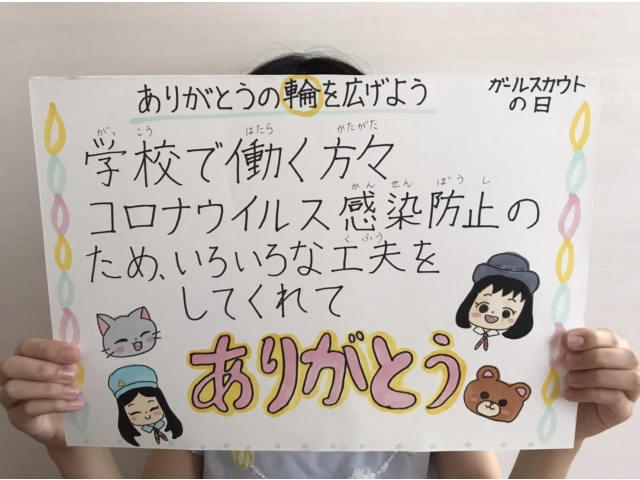 ありがとうの輪を広げよう
ガールスカウト
の日
がっ こう はたら かたがた
学校で働く方々
かん せん ぼう し
コロナウイルス感染防止の
く ふう
ため、いろいろな工夫を
してくれて
ありがとう